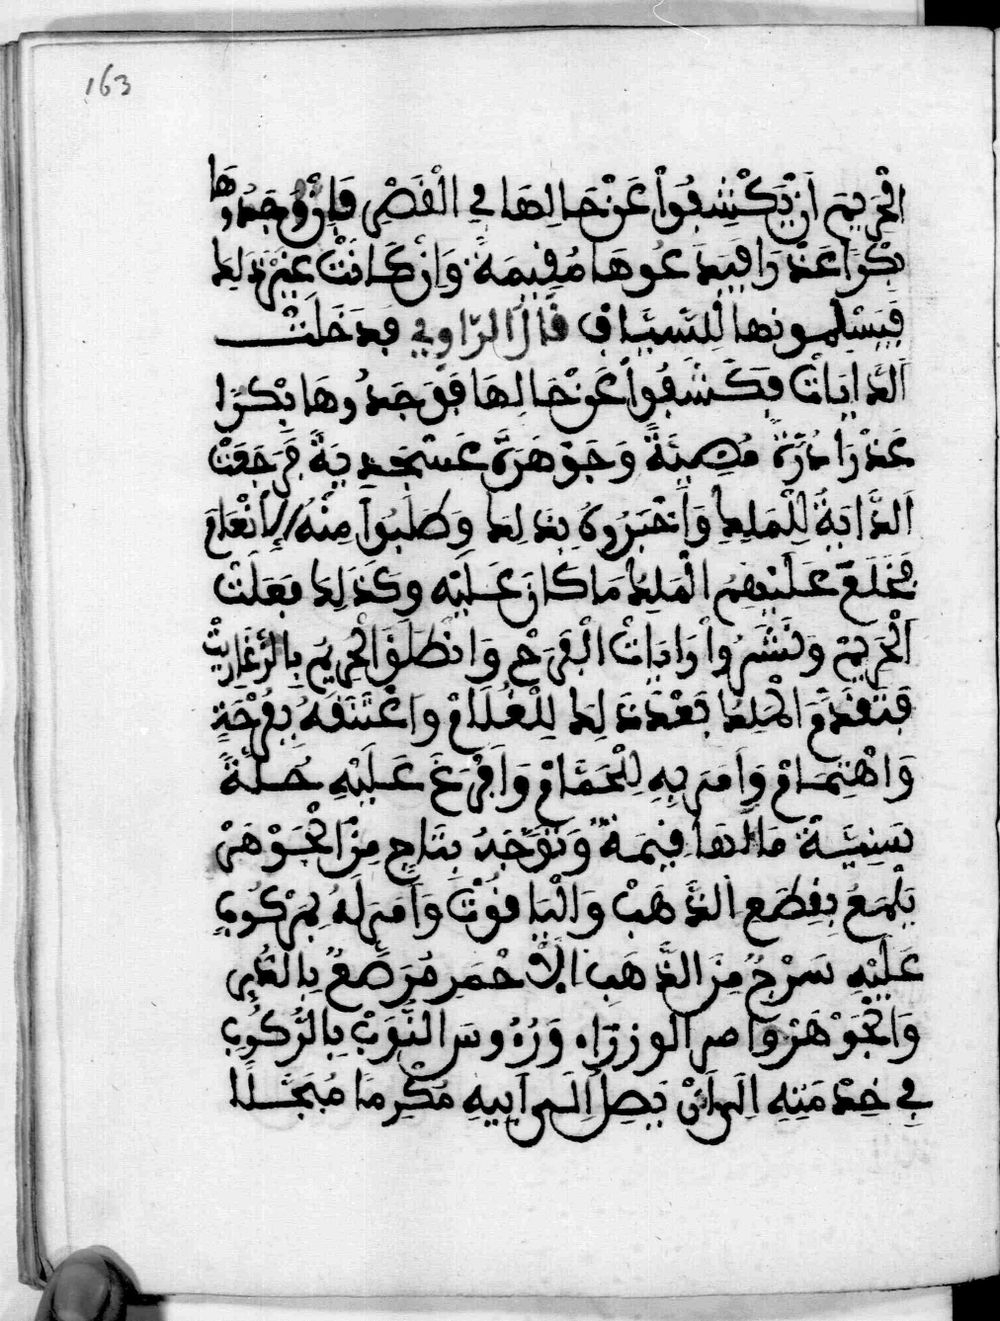 163
الْحَرِيمَ اَنْ يَكْشِفُواْ عَنْ حَالِهَا فِي الْقَصْرِ فَإِنْ وَجَدُوهَا
بِكْرًا عَذْرَا فَيَدَعُوهَا مُقِيمَةً وَاِنْ كَانَتْ غَيْرَ ذَلِكَ
فَيَسْلِمُونهَا لِلسَّيَّافِ قَالَ الرَّاوِي فَدَخَلَتْ
اَلدَّايَاتْ فَكَشَفُواْ عَنْ حَالِهَا فَوَجَدُوهَا بِكْرًا
عَذْرَا دُرَّةً مُضِيئَةً وَجَوْهَرَةً عَسْجَدِيَةً فَرَجَعَتْ
اَلدَّايَةُ لِلْمَلِكِ وَأَخْبَرُوهُ بِذَلِكَ وَطَلَبُواْ مِنْهُ الإِنْعَامَ
فَخَلَعَ عَلَيْهِمُ الْمَلِكُ مَا كَانَ عَلَيْهِ وَكَذَلِكَ فَعَلَتْ
اَلْحَرِيمْ وَنَشَرُواْ رَايَاتْ الْفَرَحِ وَانْطَلَقَ الْحَرِيمَ بِالزَّغَارِيتْ
فَتَقَدَّمَ الْمَلِكُ بَعْدَ ذَلِكَ لِلْغُلَامْ وَاعْتَنَقَهُ بِفَرْحَةٍ
وَاهْتِمَامْ وَاَمَرَ بِهِ لِلْحَمَّامْ وَاَفْرَغَ عَلَيْهِ حُلَّةً
سَنِيَّةْ مَا لَهَا قِيمَةً وَتَوَّجَهُ بِتَاجٍ مِنَ الْجَوْهَرْ
يَلْمَعُ بِقِطَعِ الذَّهَبْ وَالْيَاقُوتْ وَاَمَرَ لَهُ بِمَرْكُوبٍ
عَلَيْهِ سَرْجٌ مِنَ الذَّهَبِ الْاَحْمَرِ مُرَصَّعٌ بِالدُّرِّ
وَالْجَوْهَرْ وَامر الوزرَاء وَرُءُوسَ النُّوَبْ بِالرُّكُوبِ
فِي خِدْمَتِهِ اِلَى اَنْ يَصِلَ اِلَى اَبِيهِ مُكْرمَا مُبَجَّلًا